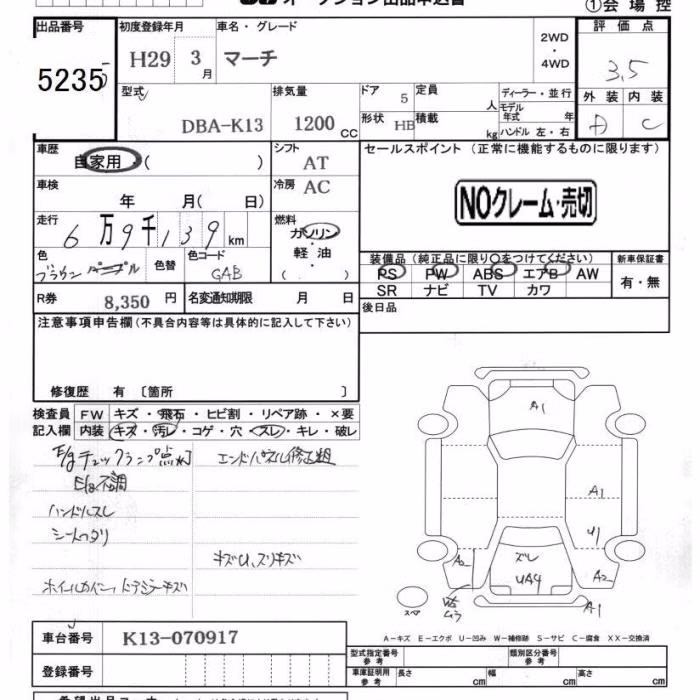 オークション出品申込書
①会場控
出品番号 初度登録年月 車名・グレード 2WD・4WD 評価点
5235 H29 3月 マーチ 3.5
外装 内装
型式 排気量 ドア 5 定員 人 ディーラー・並行
モデル年式 年
DBA-K13 1200CC 形状 HB 積載 kg ハンドル 左・右
C
車歴 自家用・( ) シフト AT
セールスポイント(正常に機能するものに限ります)
車検 年 月( 日) 冷房 AC
NOクレーム・売切
走行 6万9千139km 燃料 ガソリン・軽油・( )
装備品(純正品に限り○をつけてください) 新車保証書
色 ブラウン パープル 色替 色コード GAB
PS PW ABS エアB AW 有・無
SR ナビ TV カワ
R券 8,350円 名変通知期限 月 日
後日品
注意事項申告欄(不具合内容等は具体的に記入して下さい)
修復歴 有〔箇所 〕
検査員記入欄 FW キズ・飛石・ヒビ割・リペア跡・×要
内装 キズ・汚レ・コゲ・穴・スレ・キレ・破レ
E/gチェックランプ点灯 エンドパネル修正粗
E/g不調
ハンドルスレ
シートヘタリ
キズU、スリキズ
ホイールカバー、ドアミラーキズ
A1
A1
U1
A2 ズレ A2
UA4
ムラ A1
スペア
車台番号 K13-070917
A-キズ E-エクボ U-凹み W-補修跡 S-サビ C-腐食 XX-交換済
登録番号
型式指定番号 参考 類別区分番号 参考
車庫証明用 参考 長さ cm 幅 cm 高さ cm
希望出品コーナー